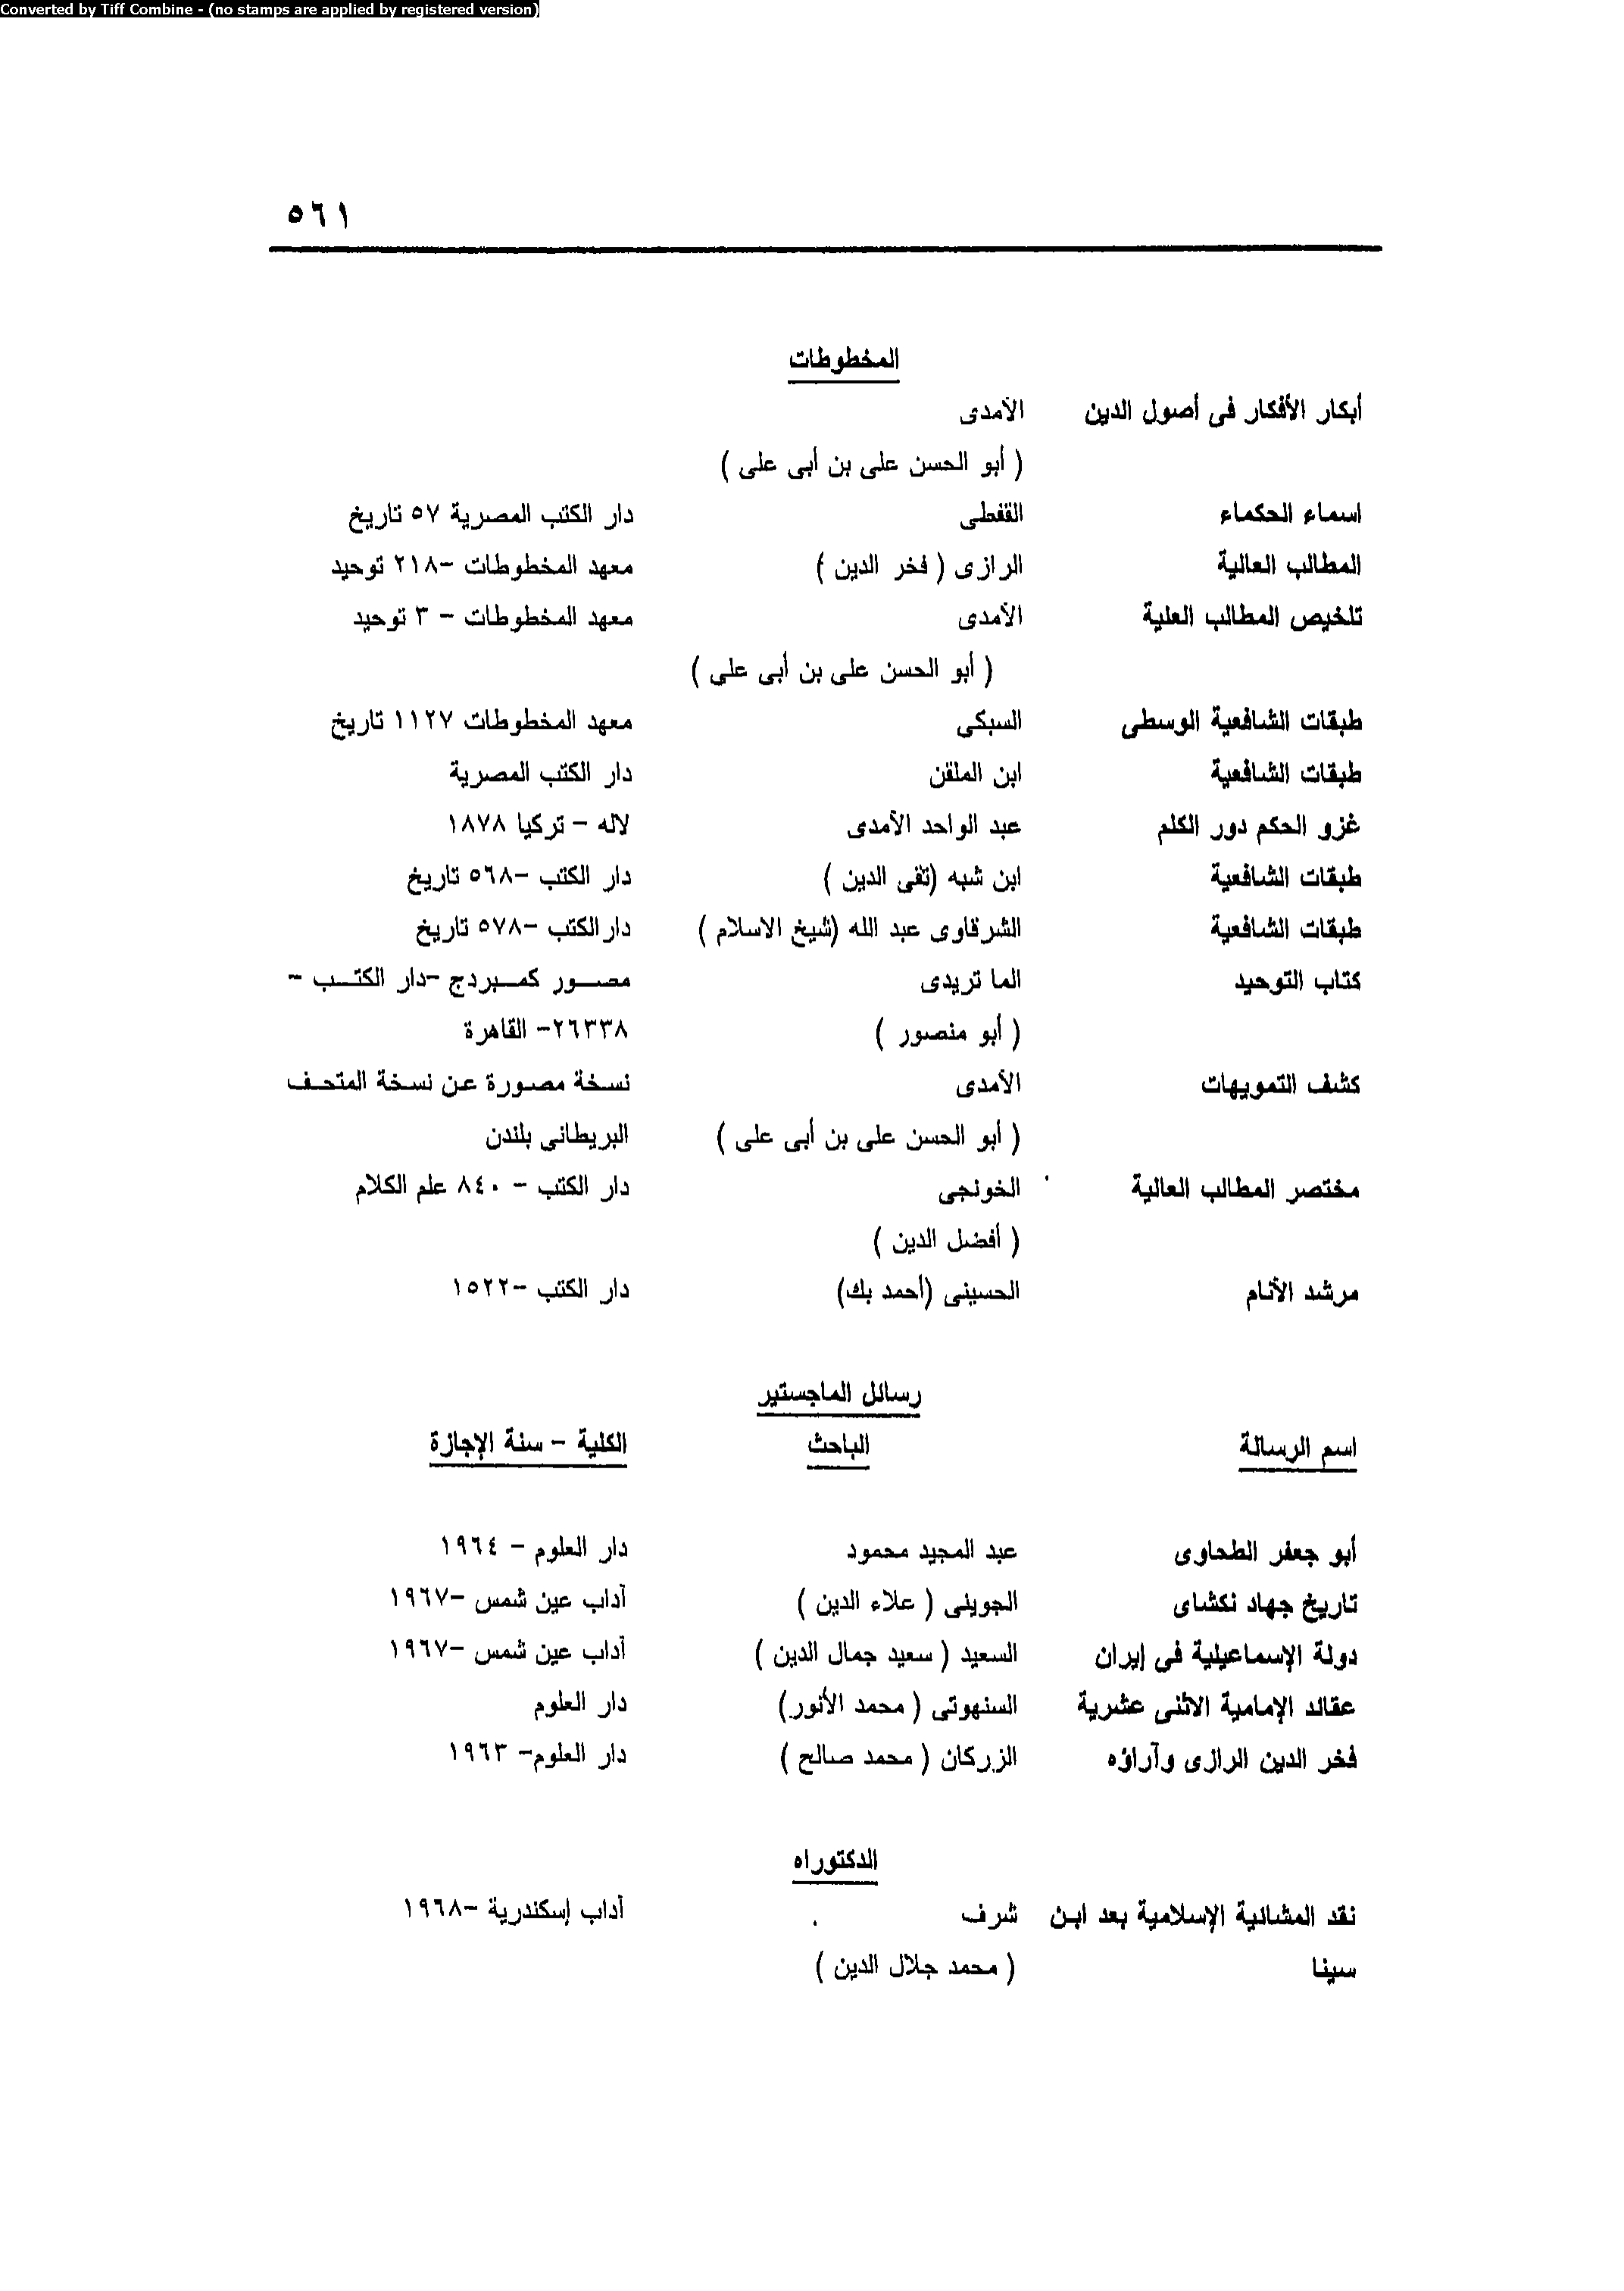 Converted by Tiff Combine - (no stamps are applied by registered version)
٥٦١
المخطوطات
أبكار الأفكار فى أصول الدين الآمدى
( أبو الحسن على بن أبى على )
اسماء الحكماء القفطى دار الكتب المصرية ٥٧ تاريخ
المطالب العالية الرازى ( فخر الدين ) معهد المخطوطات -٢١٨ توحيد
تلخيص المطالب العلية الآمدى معهد المخطوطات - ٣ توحيد
( أبو الحسن على بن أبى على )
طبقات الشافعية الوسطى السبكى معهد المخطوطات ١١٢٧ تاريخ
طبقات الشافعية ابن الملقن دار الكتب المصرية
غزو الحكم دور الكلم عبد الواحد الآمدى لاله - تركيا ١٨٧٨
طبقات الشافعية ابن شبه (تقى الدين ) دار الكتب -٥٦٨ تاريخ
طبقات الشافعية الشرقاوى عبد الله (شيخ الاسلام ) دار الكتب -٥٧٨ تاريخ
كتاب التوحيد الما تريدى مصـــور كمـــبردج -دار الكتـــب -
( أبو منصور ) ٢٦٣٣٨- القاهرة
كشف التمويهات الآمدى نسـخة مصـورة عـن نسـخة المتحـف
( أبو الحسن على بن أبى على ) البريطانى بلندن
مختصر المطالب العالية الخونجى دار الكتب - ٨٤٠ علم الكلام
( أفضل الدين )
مرشد الأنام الحسينى (أحمد بك) دار الكتب -١٥٢٢
رسائل الماجستير
اسم الرسالة الباحث الكلية - سنة الإجازة
أبو جعفر الطحاوى عبد المجيد محمود دار العلوم - ١٩٦٤
تاريخ جهاد نكشاى الجوينى ( علاء الدين ) آداب عين شمس -١٩٦٧
دولة الإسماعيلية فى إيران السعيد ( سعيد جمال الدين ) آداب عين شمس -١٩٦٧
عقائد الإمامية الاثنى عشرية السنهوتى ( محمد الأنور) دار العلوم
فخر الدين الرازى وآراؤه الزركان ( محمد صالح ) دار العلوم- ١٩٦٣
الدكتوراه
نقد المشائية الإسلامية بعد ابـن شرف آداب إسكندرية -١٩٦٨
سينا ( محمد جلال الدين )